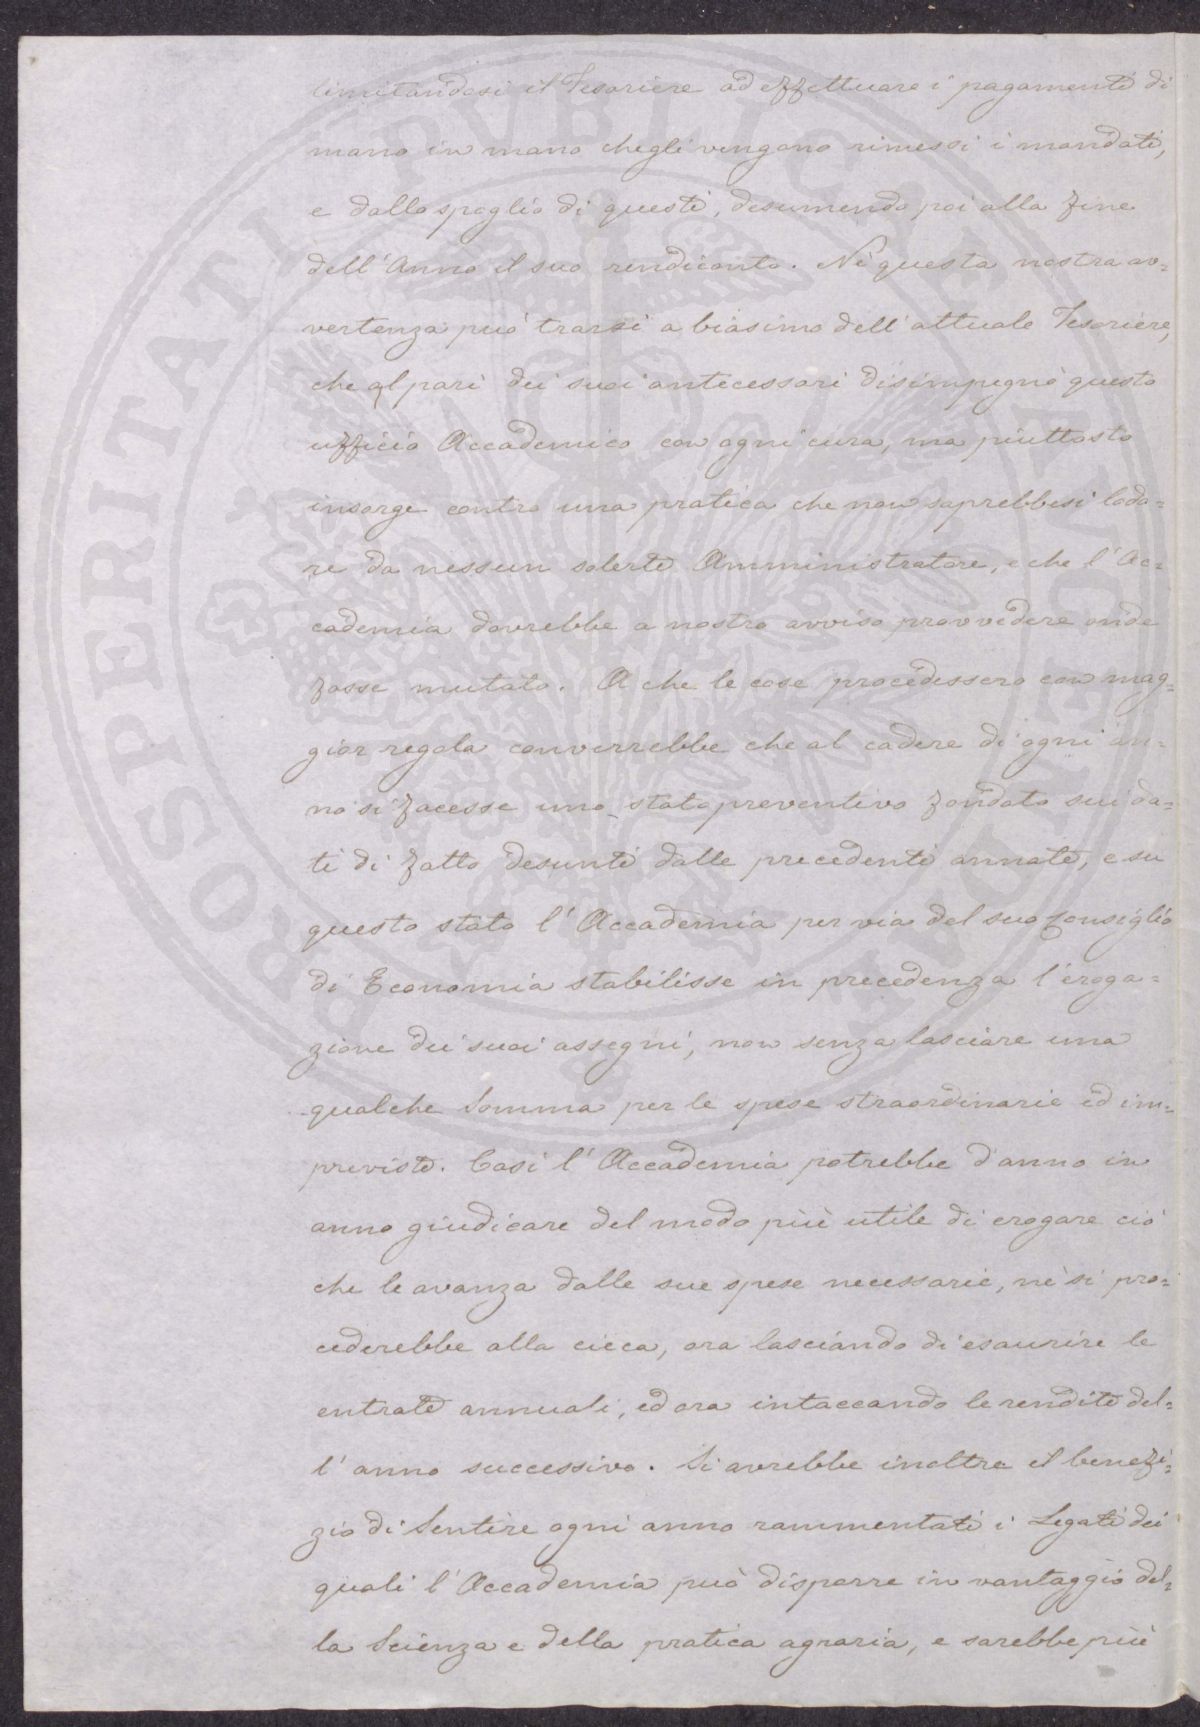 limitandosi il Tesoriere ad effettuare i pagamenti di
mano in mano che gli vengono rimessi i mandati,
e dallo spoglio di questi, desumendo poi alla fine
dell'Anno il suo rendiconto. Nè questa nostra av=
vertenza può trarsi a biasimo dell'attuale Tesoriere,
che al pari dei suoi antecessori disimpegnò questo
ufficio Accademico con ogni cura, ma piuttosto
insorge contro una pratica che non saprebbesi loda=
re da nessun solerte Amministratore, e che l'Ac=
cademia dovrebbe a nostro avviso provvedere onde
fosse mutato. A che le cose procedessero con mag=
gior regola converrebbe che al cadere di ogni an=
no si facesse uno stato preventivo fondato sui da=
ti di fatto desunti dalle precedenti annate, e su
questo stato l'Accademia per via del suo Consiglio
di Economia stabilisse in precedenza l'eroga=
zione dei suoi assegni, non senza lasciare una
qualche Somma per le spese straordinarie ed im=
previste. Così l'Accademia potrebbe d'anno in
anno giudicare del modo più utile di erogare ciò
che le avanza dalle sue spese necessarie, nè si pro=
cederebbe alla cieca, ora lasciando di esaurire le
entrate annuali, ed ora intaccando le rendite del=
l'anno successivo. Si avrebbe inoltre il benefi=
zio di Sentire ogni anno rammentati i Legati dei
quali l'Accademia può disporre in vantaggio del=
la Scienza e della pratica agraria, e sarebbe più
PROSPERITATI PVBLICAE AVGENDAE